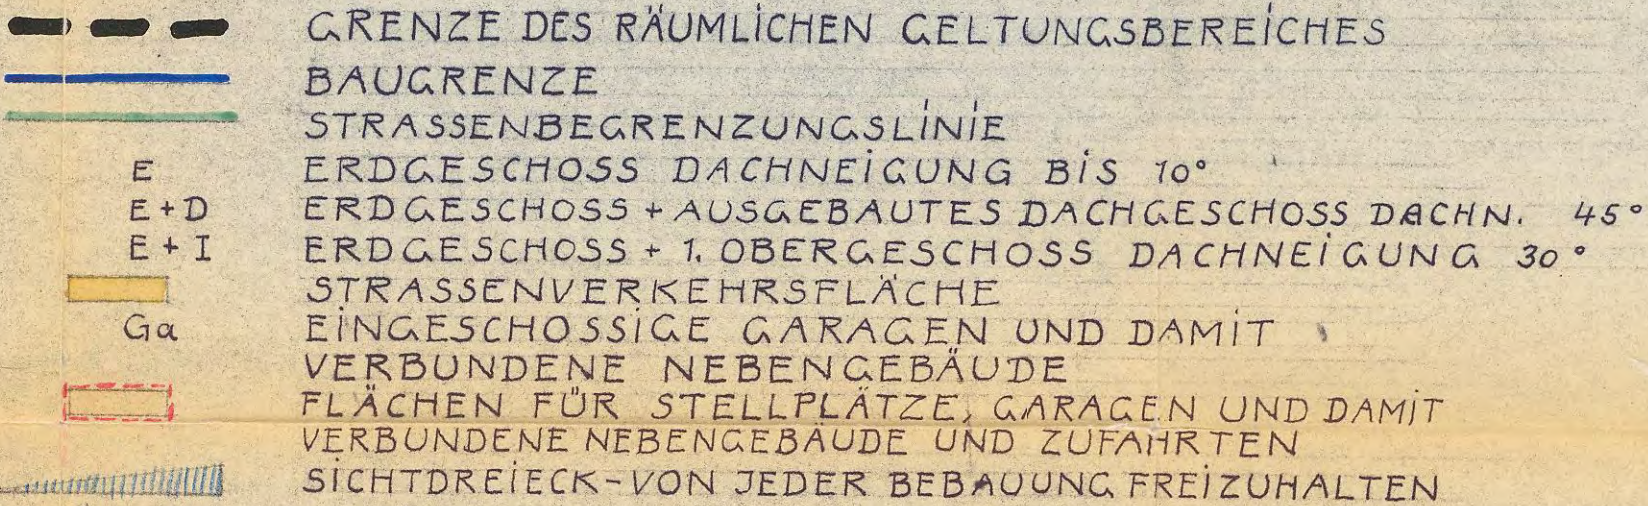 GRENZE DES RÄUMLICHEN GELTUNGSBEREICHES
BAUGRENZE
STRASSENBEGRENZUNGSLINIE
E ERDGESCHOSS DACHNEIGUNG BIS 10°
E+D ERDGESCHOSS + AUSGEBAUTES DACHGESCHOSS DACHN. 45°
E+I ERDGESCHOSS + 1. OBERGESCHOSS DACHNEIGUNG 30°
STRASSENVERKEHRSFLÄCHE
Ga EINGESCHOSSIGE GARAGEN UND DAMIT
VERBUNDENE NEBENGEBÄUDE
FLÄCHEN FÜR STELLPLÄTZE, GARAGEN UND DAMIT
VERBUNDENE NEBENGEBÄUDE UND ZUFAHRTEN
SICHTDREIECK-VON JEDER BEBAUUNG FREIZUHALTEN